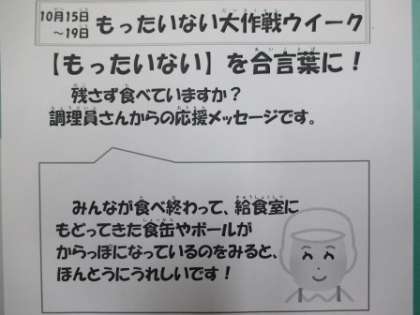 10月15日
～19日
もったいない大作戦ウイーク
【もったいない】を合言葉に！
残さず食べていますか？
調理員さんからの応援メッセージです。
みんなが食べ終わって、給食室に
もどってきた食缶やボールが
からっぽになっているのをみると、
ほんとうにうれしいです！